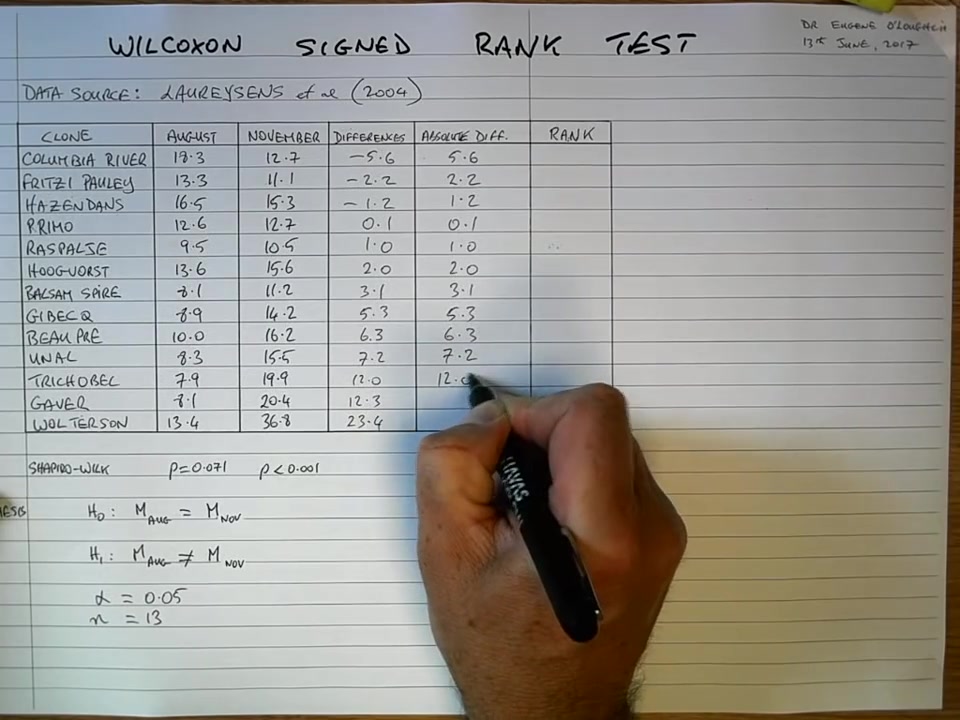 DR EUGENE O'LOUGHLIN
13TH JUNE, 2017
WILCOXON SIGNED RANK TEST
DATA SOURCE: LAUREYSENS et al (2004)
CLONE AUGUST NOVEMBER DIFFERENCES ABSOLUTE DIFF. RANK
COLUMBIA RIVER 18.3 12.7 -5.6 5.6
FRITZI PAULEY 13.3 11.1 -2.2 2.2
HAZENDANS 16.5 15.3 -1.2 1.2
PRIMO 12.6 12.7 0.1 0.1
RASPALJE 9.5 10.5 1.0 1.0
HOOGVORST 13.6 15.6 2.0 2.0
BALSAM SPIRE 8.1 11.2 3.1 3.1
GIBECQ 8.9 14.2 5.3 5.3
BEAUPRE 10.0 16.2 6.3 6.3
UNAL 8.3 15.5 7.2 7.2
TRICHOBEL 7.9 19.9 12.0 12.0
GAVER 8.1 20.4 12.3
WOLTERSON 13.4 36.8 23.4
SHAPIRO-WILK p=0.071 p<0.001
H0: M AUG = M NOV
H1: M AUG ≠ M NOV
α = 0.05
n = 13